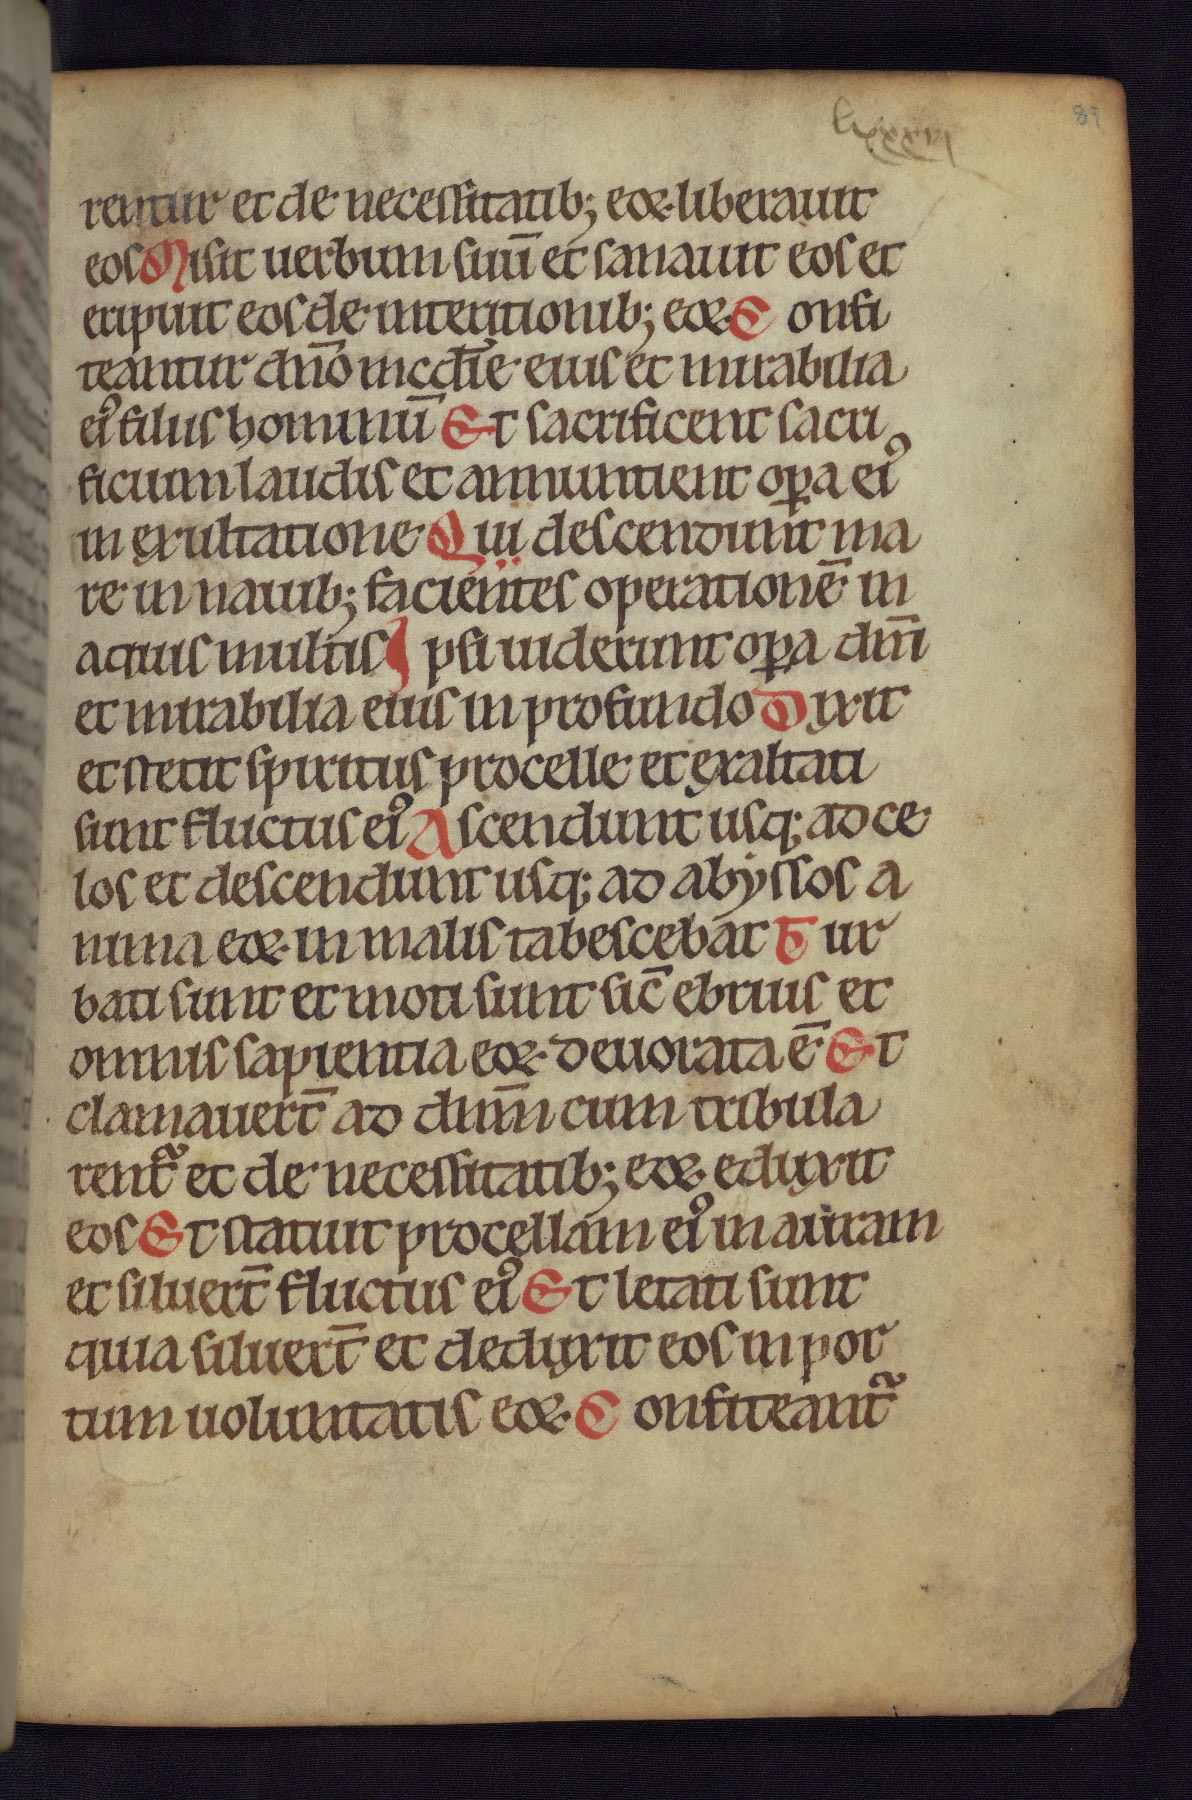 lxxxvi
89
rentur et de necessitatib; eoꝝ liberauit
eos Misit uerbum suū et sanauit eos et
eripuit eos de interitionib; eoꝝ Confi
teantur dn̄o mcd̄ie eius et mirabilia
eiꝰ filiis hominū Et sacrificent sacri
ficium laudis et annuntient oꝑa eiꝰ
in exultatione Qui descendunt ma
re in nauib; facientes operationē in
aquis multis Ipsi uiderunt oꝑa dn̄i
et mirabilia eius in profundo Dixit
et stetit spiritus procelle et exaltati
sunt fluctus eiꝰ Ascendunt usq; ad ce
los et descendunt usq; ad abyssos a
nima eoꝝ in malis tabescebat Tur
bati sunt et moti sunt sic̄ ebrius et
omnis sapientia eoꝝ deuorata ē Et
clamauert̄ ad dn̄m cum tribula
rent᷑ et de necessitatib; eoꝝ eduxit
eos Et statuit procellam eiꝰ in auram
et siluert̄ fluctus eiꝰ Et letati sunt
quia siluert̄ et deduxit eos in por
tum uoluntatis eoꝝ Confiteant᷑